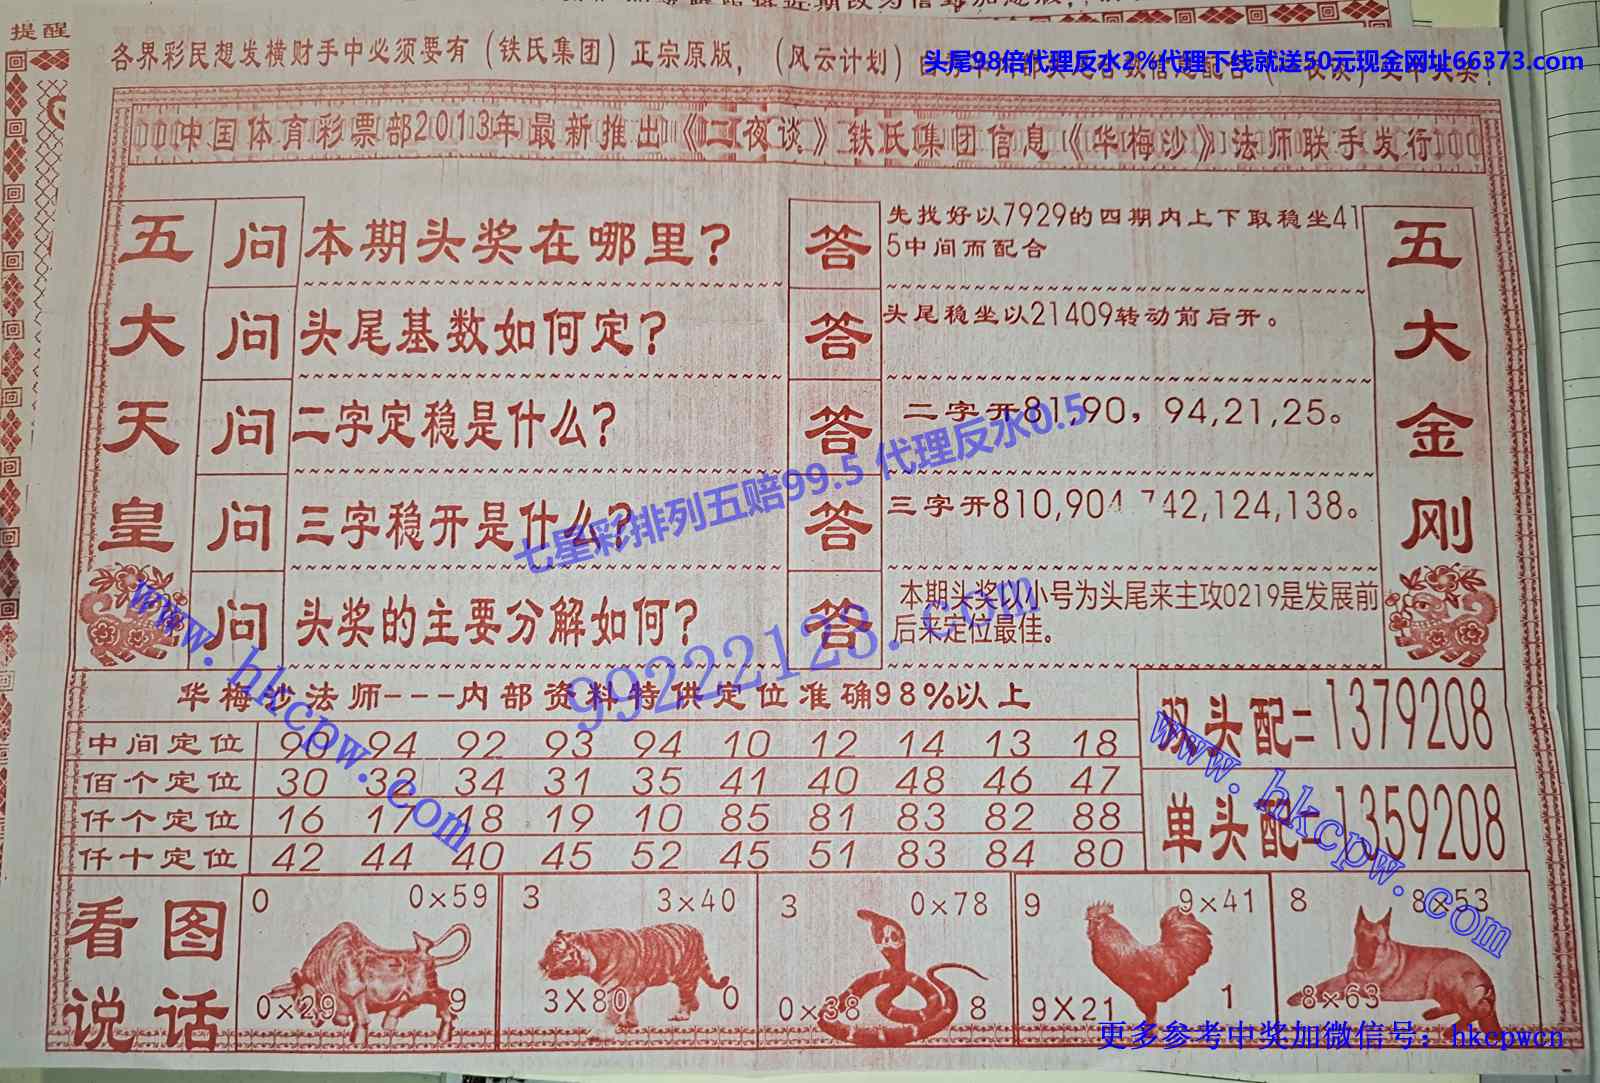 提醒
各界彩民想发横财手中必须要有（铁氏集团）正宗原版，（风云计划）
头尾98倍代理反水2%代理下线就送50元现金网址66373.com
中国体育彩票部2013年最新推出《二夜谈》铁氏集团信息《华梅沙》法师联手发行
五大天皇
问 本期头奖在哪里？
答 先找好以7929的四期内上下取稳坐41
5中间而配合
问 头尾基数如何定？
答 头尾稳坐以21409转动前后开。
问 二字定稳是什么？
答 二字开81,90，94,21,25。
问 三字稳开是什么？
答 三字开810,904,742,124,138。
问 头奖的主要分解如何？
答 本期头奖以小号为头尾来主攻0219是发展前
后来定位最佳。
五大金刚
七星彩排列五赔99.5 代理反水0.5
99222123.com
www.hkcpw.com
华梅沙法师---内部资料特供定位准确98%以上
中间定位 90 94 92 93 94 10 12 14 13 18
佰个定位 30 32 34 31 35 41 40 48 46 47
仟个定位 16 17 18 19 10 85 81 83 82 88
仟十定位 42 44 40 45 52 45 51 83 84 80
双头配=1379208
单头配=1359208
www.hkcpw.com
看图
说话
0 0×59
0×29 9
3 3×40
3X80 0
3 0×78
0×38 8
9 9×41
9X21 1
8 8×53
8×63
更多参考中奖加微信号：hkcpwcn